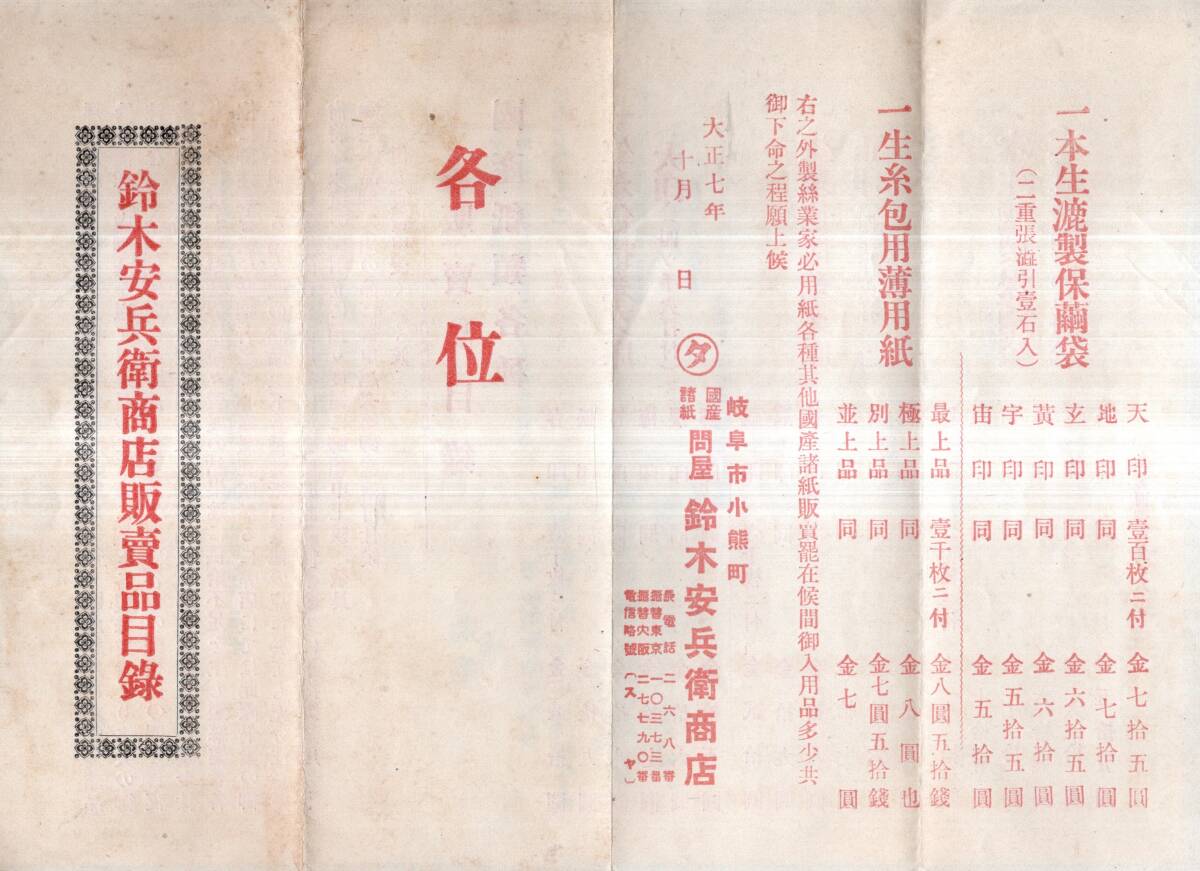 一本生漉製保繭袋
（二重張澁引壹石入）
天印 壹百枚ニ付 金七拾五圓
地印 同 金七拾圓
玄印 同 金六拾五圓
黃印 同 金六拾圓
宇印 同 金五拾五圓
宙印 同 金五拾圓
一生糸包用薄用紙
最上品 壹千枚ニ付 金八圓五拾錢
極上品 同 金八圓也
別上品 同 金七圓五拾錢
並上品 同 金七圓
右之外製絲業家必用紙各種其他國產諸紙販賣罷在候間御入用品多少共
御下命之程願上候
大正七年
十月 日
岐阜市小熊町
タ 國産諸紙 問屋 鈴木安兵衛商店
長電話 二六八番
振替東京 一〇三七三番
振替大阪 二七七九〇番
電信略號（スヤ）
各位
鈴木安兵衛商店販賣品目錄